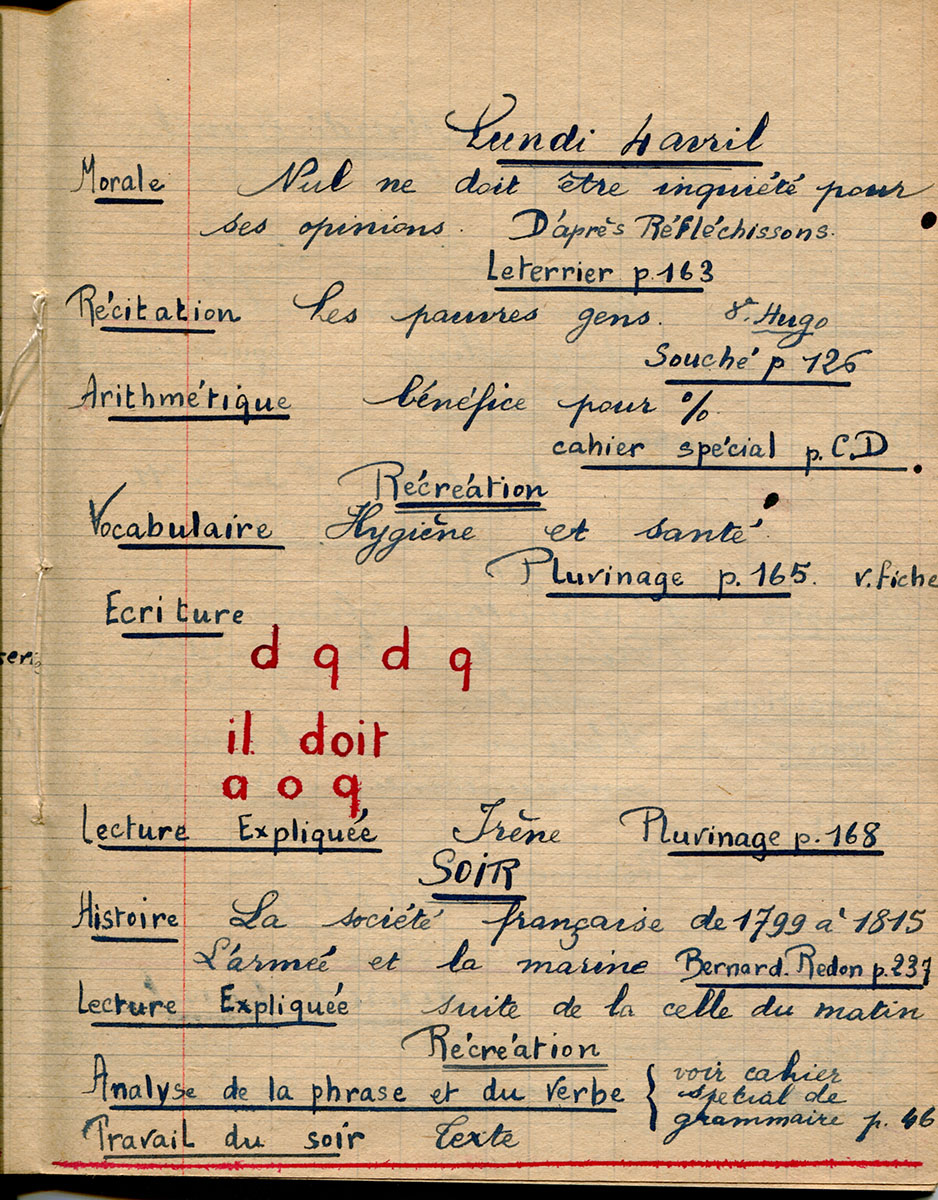 Lundi 4 avril
Morale Nul ne doit être inquiété pour
ses opinions. D'après Réfléchissons.
Leterrier p.163
Récitation Les pauvres gens. V. Hugo
Souché p 126
Arithmétique bénéfice pour %
cahier spécial p. C.D.
Récréation
Vocabulaire Hygiène et santé
Pluvinage p.165. v. fiche
Ecriture
d q d q
il doit
a o q
Lecture Expliquée Irène Pluvinage p.168
SOIR
Histoire La société française de 1799 à 1815
L'armée et la marine Bernard.Redon p.237
Lecture Expliquée suite de la celle du matin
Récréation
Analyse de la phrase et du verbe { voir cahier
spécial de
grammaire p. 46
Travail du soir Texte